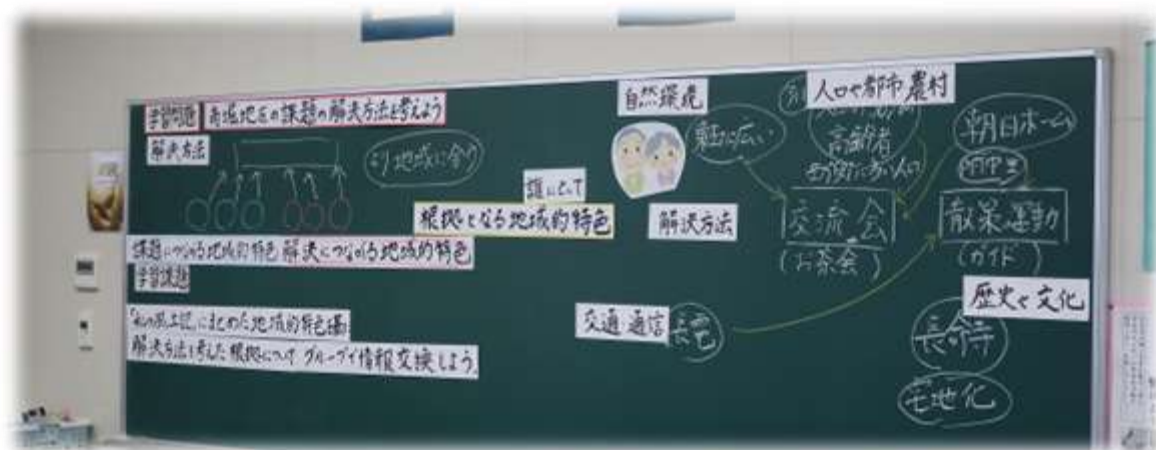 学習問題 高堀地区の課題の解決方法を考えよう
解決方法
より地域に合う
誰にとって
根拠となる地域的特色
課題につながる地域的特色 解決につながる地域的特色
学習課題
にまとめた地域的特色
解決方法を考えた根拠について グループで情報交換しよう。
自然環境
に広い
解決方法
交通・通信
人口や都市・農村
高齢者
交流会
(お茶会)
朝日ホーム
散策運動
(ガイド)
歴史や文化
長命寺
宅地化